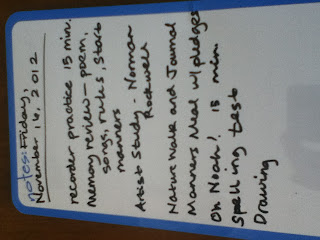 notes: Friday,
November 16, 2012
recorder practice 15 min.
Memory review - poem,
songs, rules, start
manners
Artist Study - Norman
Rockwell
Nature Walk and Journal
Manners Meal w/ pledges
Oh Noah! 15 min
Spelling test
Drawing